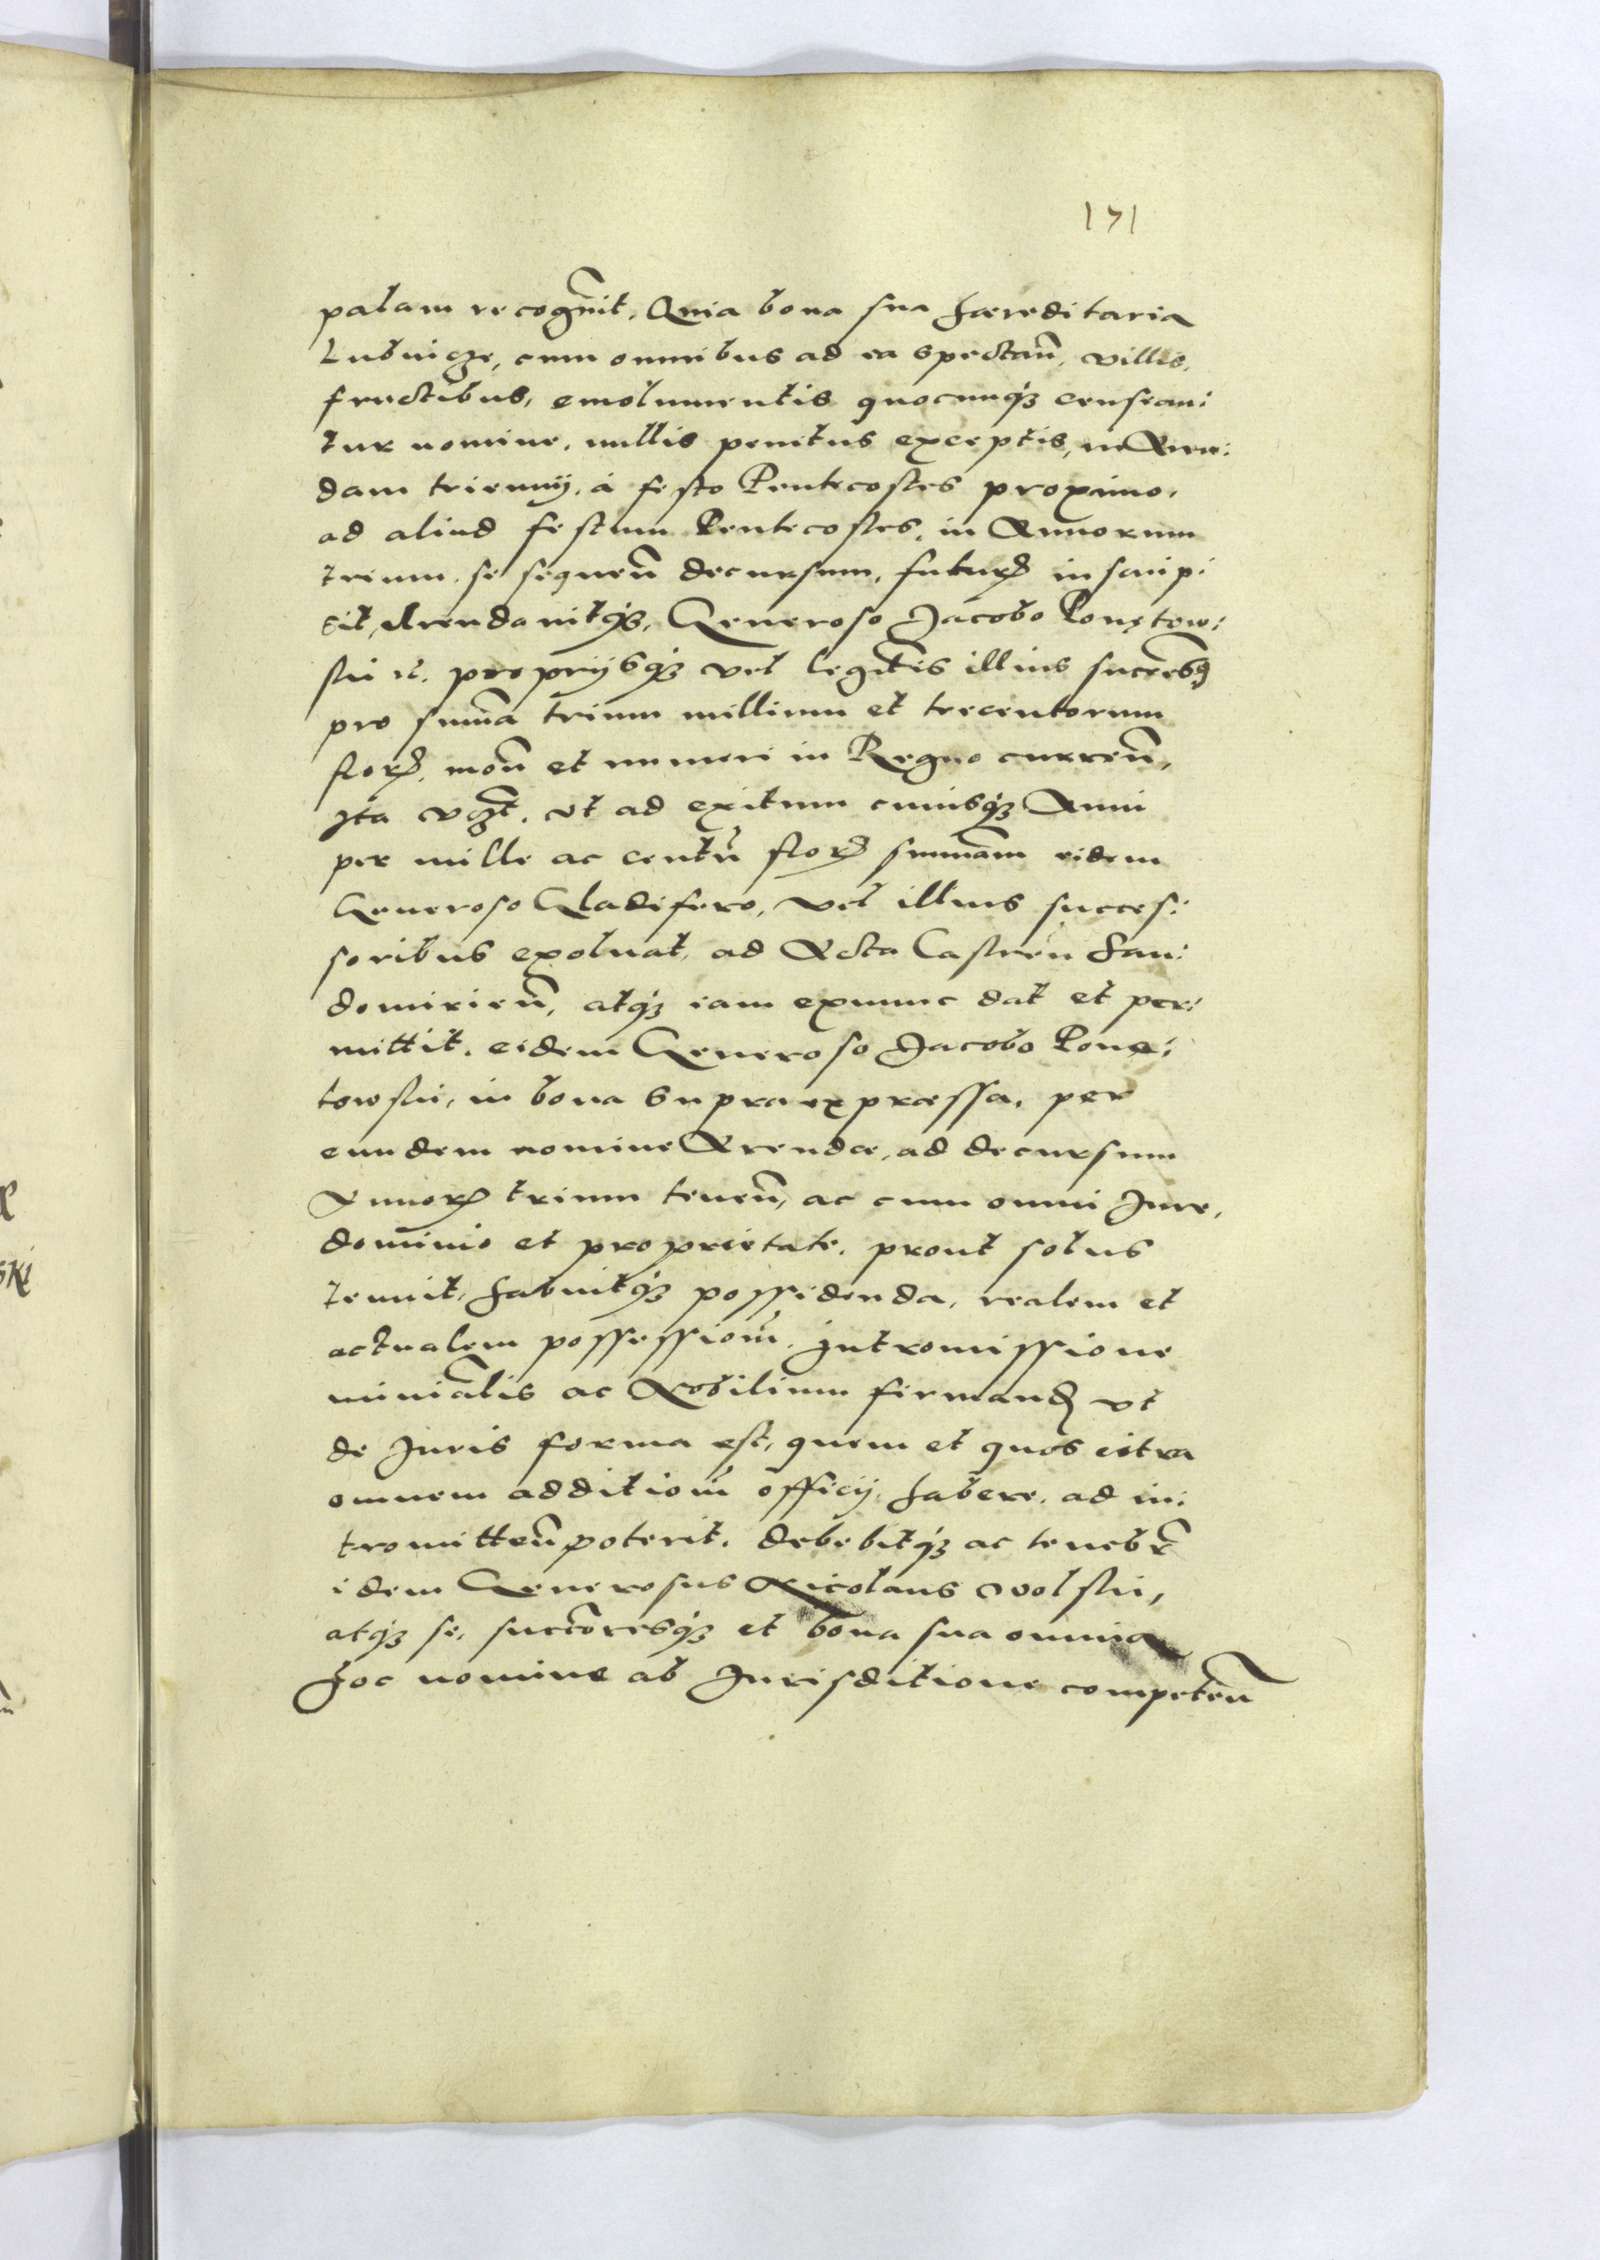 171
palam recognit, Quia bona sua haereditaria
Lubnicze, cum omnibus ad ea spectan̄, villis,
fructibus, emolumentis quocunq3 censean:
tur nomine, nullis penitus exceptis, in Aren:
dam triennij, á festo Pentecostes proximo,
ad aliud festum Pentecostes, in Annorum
trium, se sequen̄ decursum, futur, inscrip:
sit, Arendauitq3, Generoso Jacobo Ponętow:
ski proprijsq3 vel legitis illius
pro suma trium millium et trecentorum
flor, mon̄ et numeri in Regno curren̄,
Ita vt ad exitum cuiusq3 Anni
per mille ac centū flor summam eidem
Generoso Gladifero, vel illius succes:
soribus exoluat, ad Acta Castren San:
domirien̄, atq3 iam exnunc dat et per:
mittit, eidem Generoso Jacobo Ponę:
towski, in bona supra expraessa, per
eundem nomine Arendae, ad decursum
Annor trium tenen̄, ac cum omni Jure,
dominio et proprietate, prout solus
tenuit, habuitq3 possidenda, realem et
actualem possessiom̄, Intromissione
minialis ac Nobilium firmand vt
de Juris forma est, quem et quos citra
omnem additiom̄ officij, habere, ad in:
tromitten̄ poterit, debebitq3 ac tenebr
idem Generosus Nicolaus Wolski,
atq3 se, succoresq3 et bona sua omnia
hoc nomine ab Jurisditione competen̄